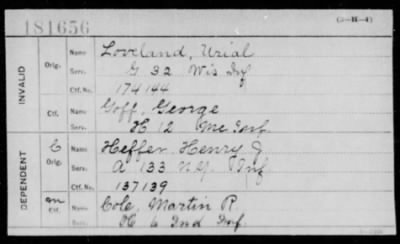 181656
(3—H—4)
INVALID
Orig.
Name Loveland, Urial
Serv. G 32 Wis Inf
Ctf. No. 174144
Ctf.
Name Goff, George
Serv. H 12 Me Inf.
DEPENDENT
C
Orig.
Name Heffer Henry J
Serv. A 133 N.Y. Inf.
Ctf. No. 137139
Ctf.
Name Cole, Martin R.
Serv. K 6 Ind Inf.